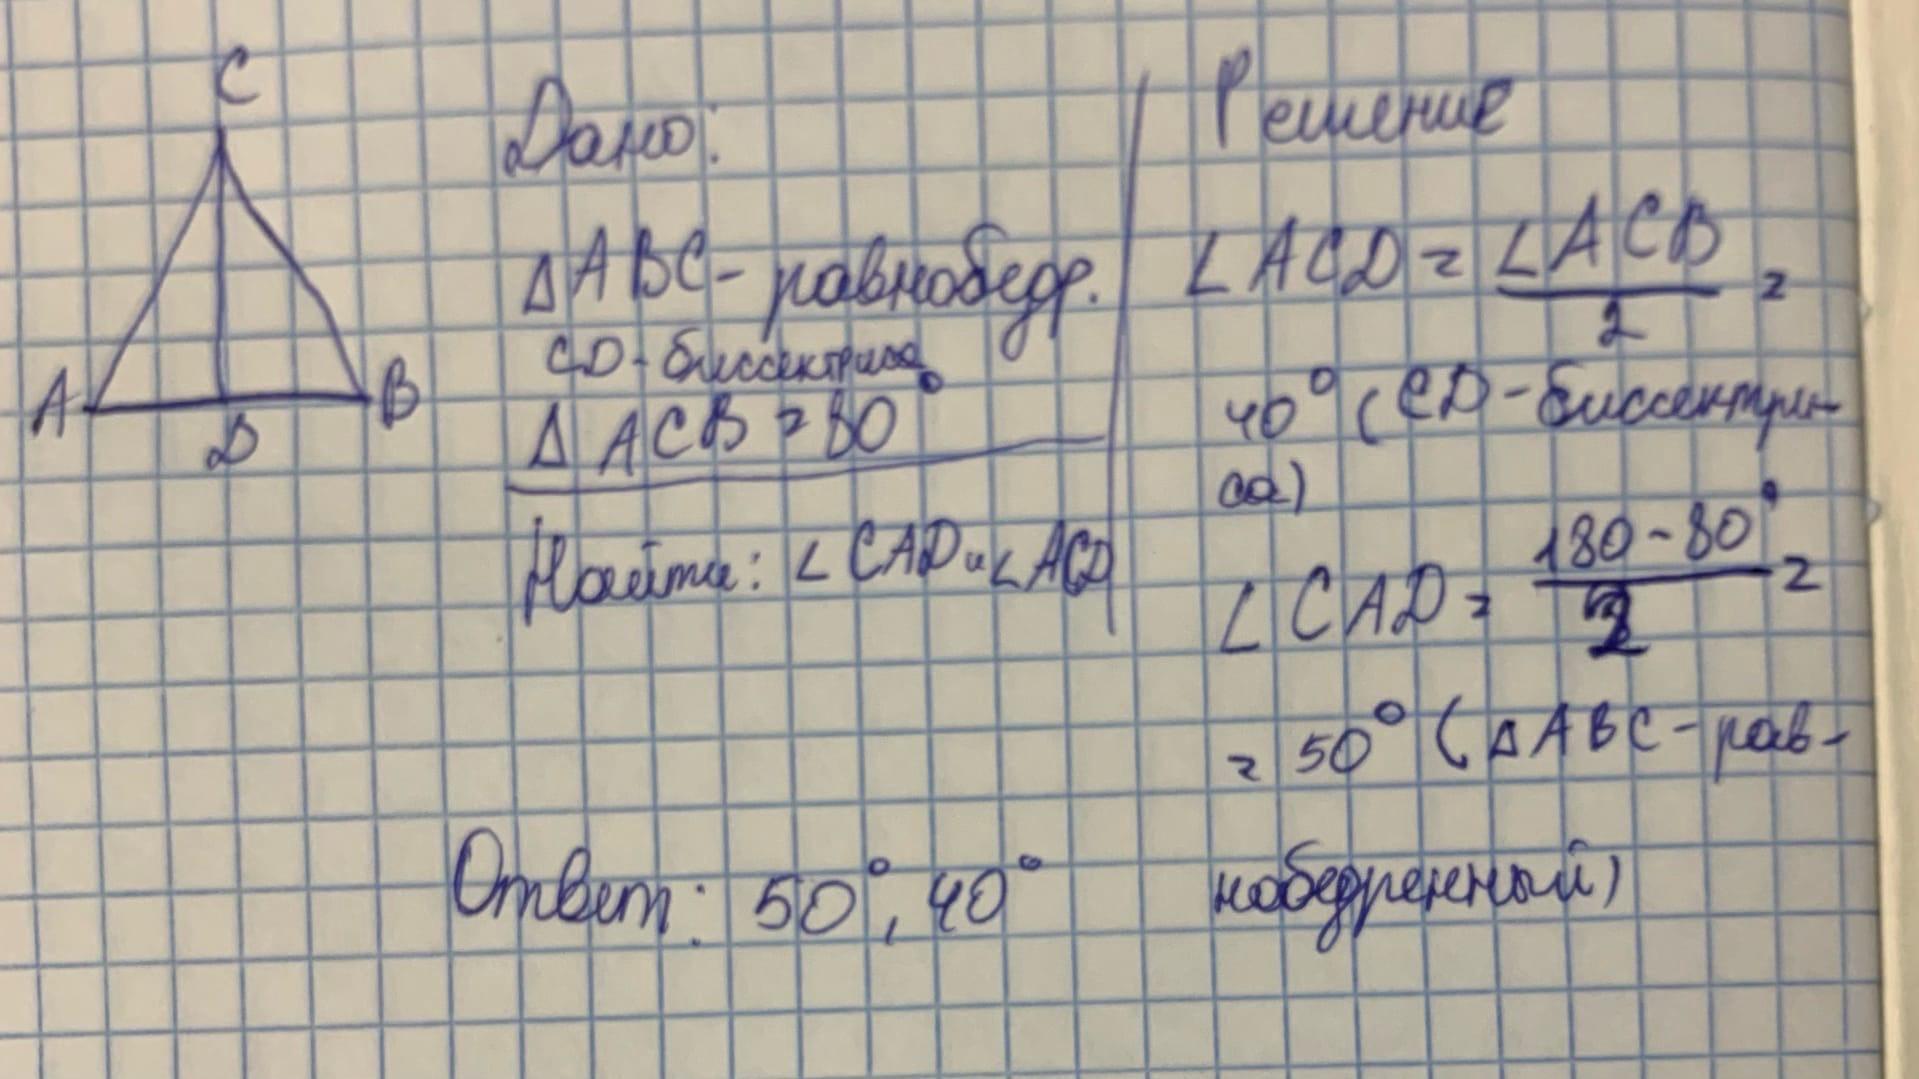 C
A
B
D
Дано:
△ABC - равнобедр.
CD - биссектриса
△ ACB = 80°
Найти: ∠CAD и ∠ACD
Решение
∠ACD = ∠ACB / 2 =
40° (CD - биссектри-
са)
∠CAD = 180 - 80° / 2 =
= 50° (△ABC - рав-
нобедренный)
Ответ: 50°, 40°